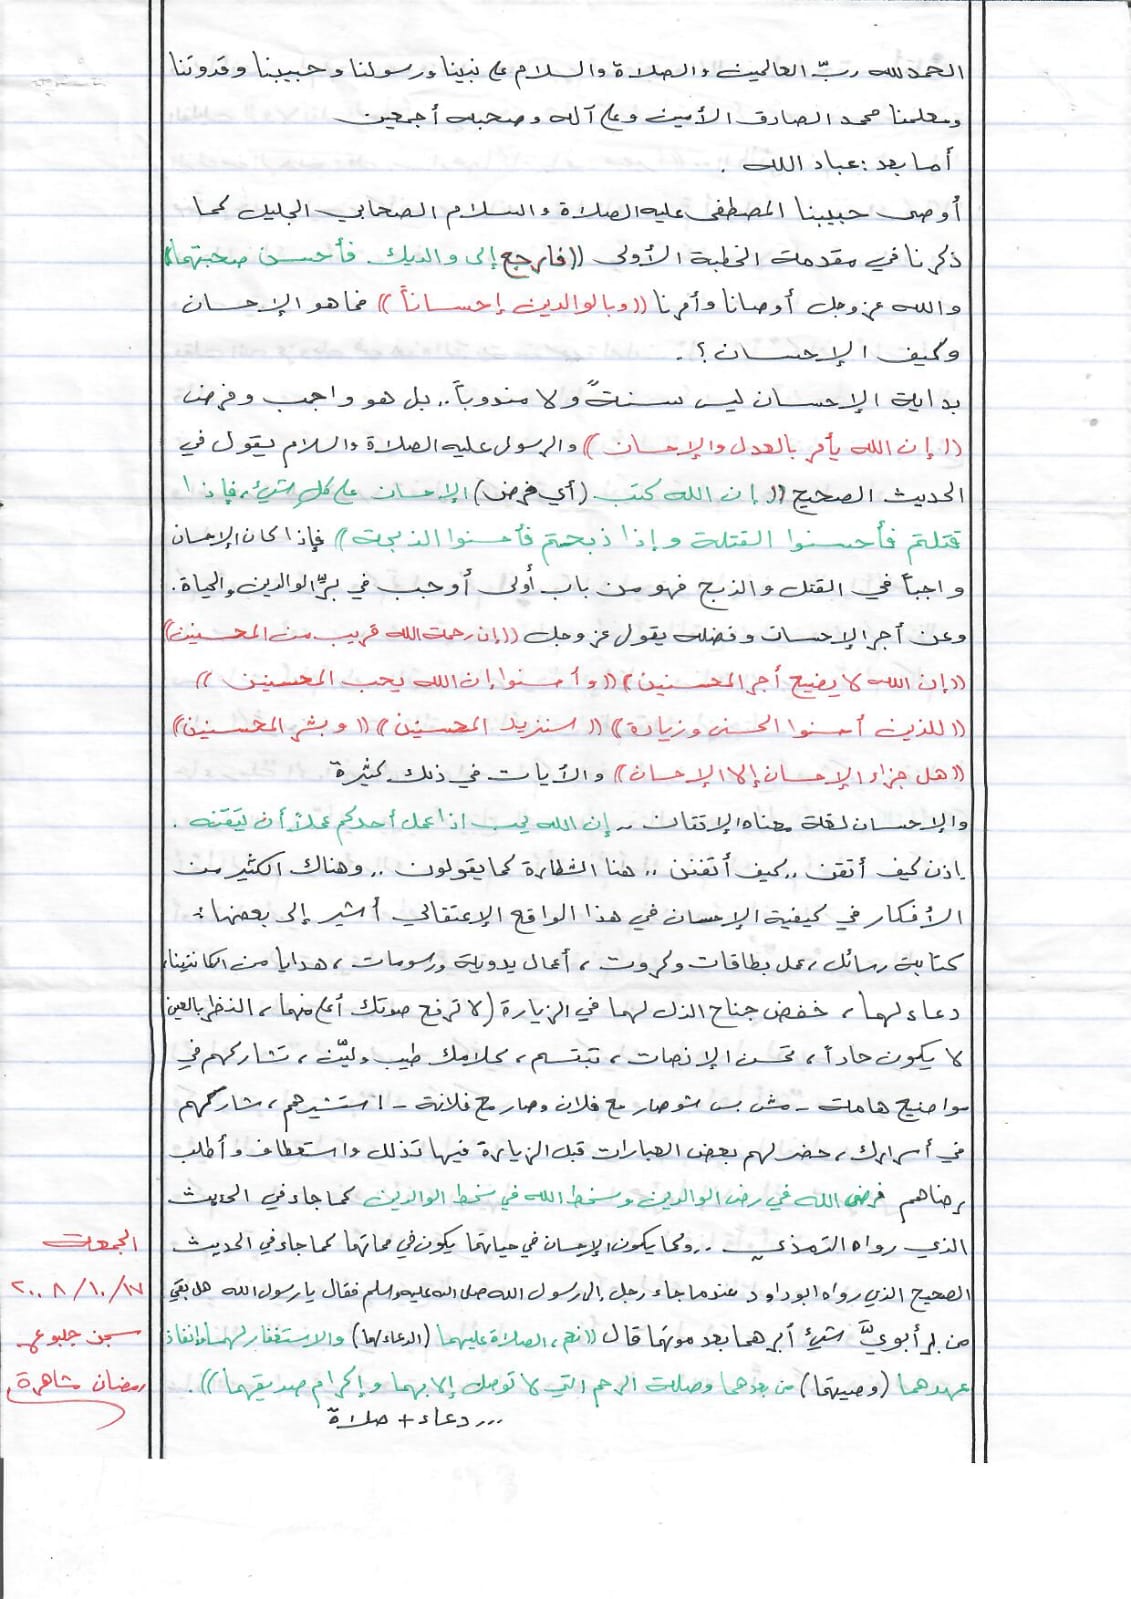 الحمد لله ربّ العالمين والصلاة والسلام على نبينا ورسولنا وحبيبنا وقدوتنا
ومعلمنا محمد الصادق الأمين وعلى آله وصحبه أجمعين
أما بعد : عباد الله .
أوصى حبيبنا المصطفى عليه الصلاة والسلام الصحابي الجليل كما
ذكرنا في مقدمة الخطبة الأولى ((فارجع إلى والديك فأحسن صحبتهما))
والله عز وجل أوصانا وأمرنا ((وبالوالدين إحساناً)) فما هو الإحسان
وكيف الإحسان ؟ .
بداية الإحسان ليس سنةً ولا مندوباً .. بل هو واجب وفرض
((إن الله يأمر بالعدل والإحسان)) والرسول عليه الصلاة والسلام يقول في
الحديث الصحيح (( إن الله كتب (أي فرض) الإحسان على كل شيء، فإذا
قتلتم فأحسنوا القتلة وإذا ذبحتم فأحسنوا الذبحة)) فإذا كان الإحسان
واجباً في القتل والذبح فهو من باب أولى أوجب في برِّ الوالدين والحياة.
وعن أجر الإحسان وفضله يقول عز وجل ((إن رحمة الله قريب من المحسنين))
((إن الله لا يضيع أجر المحسنين)) ((وأحسنوا إن الله يحب المحسنين))
((للذين أحسنوا الحسنى وزيادة)) ((سنزيد المحسنين)) ((وبشر المحسنين))
((هل جزاء الإحسان إلا الإحسان)) والآيات في ذلك كثيرة
والإحسان لغة معناه الإتقان .. إن الله يحب اذا عمل أحدكم عملاً أن يتقنه .
إذن كيف أتقن .. كيف أتفنن .. هنا الشطارة كما يقولون .. وهناك الكثير من
الأفكار في كيفية الإحسان في هذا الواقع الإعتقالي أشير إلى بعضها :
كتابة رسائل، عمل بطاقات وكروت، أعمال يدوية ورسومات، هدايا من الكانتينا،
دعاء لهما، خفض جناح الذل لهما في الزيارة (لا ترفع صوتك أعلى منهما، النظر بالعين
لا يكون حاداً، تحسن الإنصات، تبتسم، كلامك طيب وليّن، تشاركهم في
مواضيع هامة - مش بس شو صار مع فلان وصار مع فلانة - استشيرهم، شاركهم
في أسرارك، حضر لهم بعض العبارات قبل الزيارة فيها تذلل واستعطاف وأطلب
رضاهم فرضى الله في رضى الوالدين وسخط الله في سخط الوالدين كما جاء في الحديث
الذي رواه الترمذي .. وكما يكون الإحسان في حياتهما يكون في مماتهما كما جاء في الحديث
الصحيح الذي رواه ابو داود عندما جاء رجل إلى رسول الله صلى الله عليه وسلم فقال يا رسول الله هل بقي
من بر أبويَّ شيءٌ أبرهما بعد موتهما قال ((نعم، الصلاة عليهما (الدعاء لهما) والاستغفار لهما وإنفاذ
عهدهما (وصيتهما) من بعدهما وصلة الرحم التي لا توصل إلا بهما وإكرام صديقهما)).
... دعاء + صلاة
الجمعة
١٧/١٠/٢٠٠٨
سجن جلبوع
رمضان مشاهرة